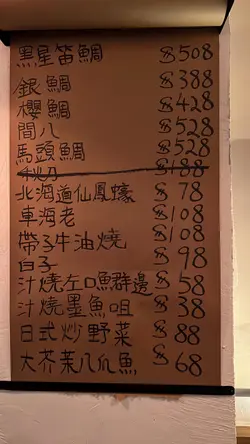 黑星笛鯛 $508
銀鯛 $388
櫻鯛 $428
間八 $528
馬頭鯛 $528
$188
北海道仙鳳蠔 $78
車海老 $108
帶子牛油燒 $108
白子 $98
汁燒左口魚群邊 $58
汁燒墨魚咀 $38
日式炒野菜 $88
大芥菜八爪魚 $68